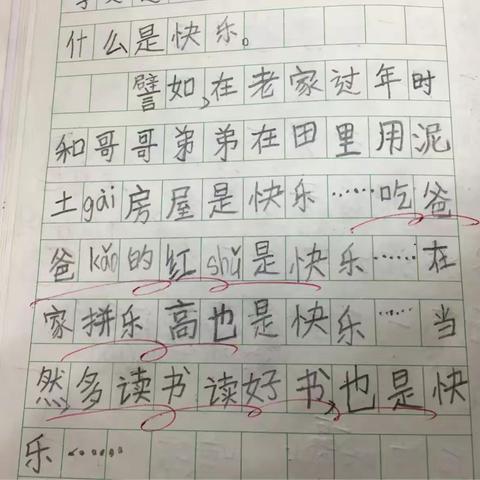 什么是快乐。
譬如,在老家过年时
和哥哥弟弟在田里用泥
土gài房屋是快乐……吃爸
爸kǎo的红shǔ是快乐……在
家拼乐高也是快乐…当
然多读书读好书,也是快
乐……